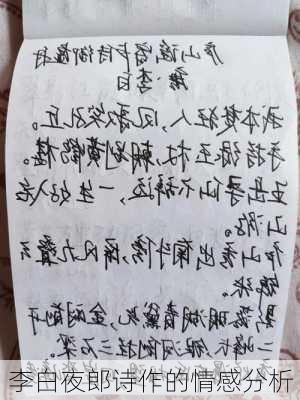 庐山谣,寄卢侍御虚舟
唐·李白
我本楚狂人,凤歌笑孔丘。
手持绿玉杖,朝别黄鹤楼。
五岳寻仙不辞远,一生好入名
山游。
庐山秀出南斗傍,屏风九叠云
锦张。
影落明湖青黛光,金阙前开
二峰长,银河倒挂三石梁。
李白夜郎诗作的情感分析